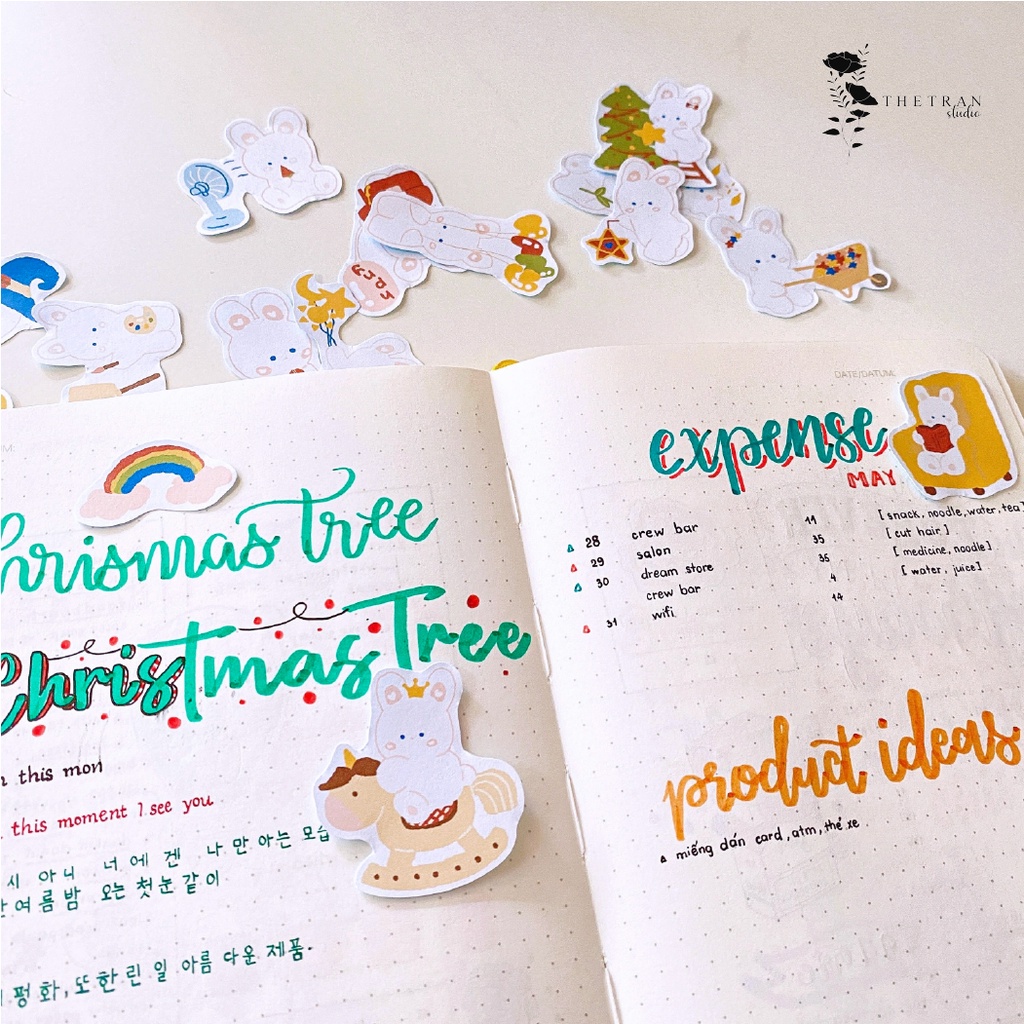 THETRAN
studio
DATE/DATUM:
hrismas tree
Christmas Tree
this mon
this moment I see you
시 아니 너에겐 나만 아는 모습
여름밤 오는 첫눈 같이
평화, 또한 린 일 아름 다운 제품.
expense
MAY
28 crew bar 14 [snack, noodle, water, tea]
29 salon 35 [cut hair]
30 dream store 35 [medicine, noodle]
crew bar 4 [water, juice]
31 wifi 14
product ideas
miếng dán card, atm, thẻ xe